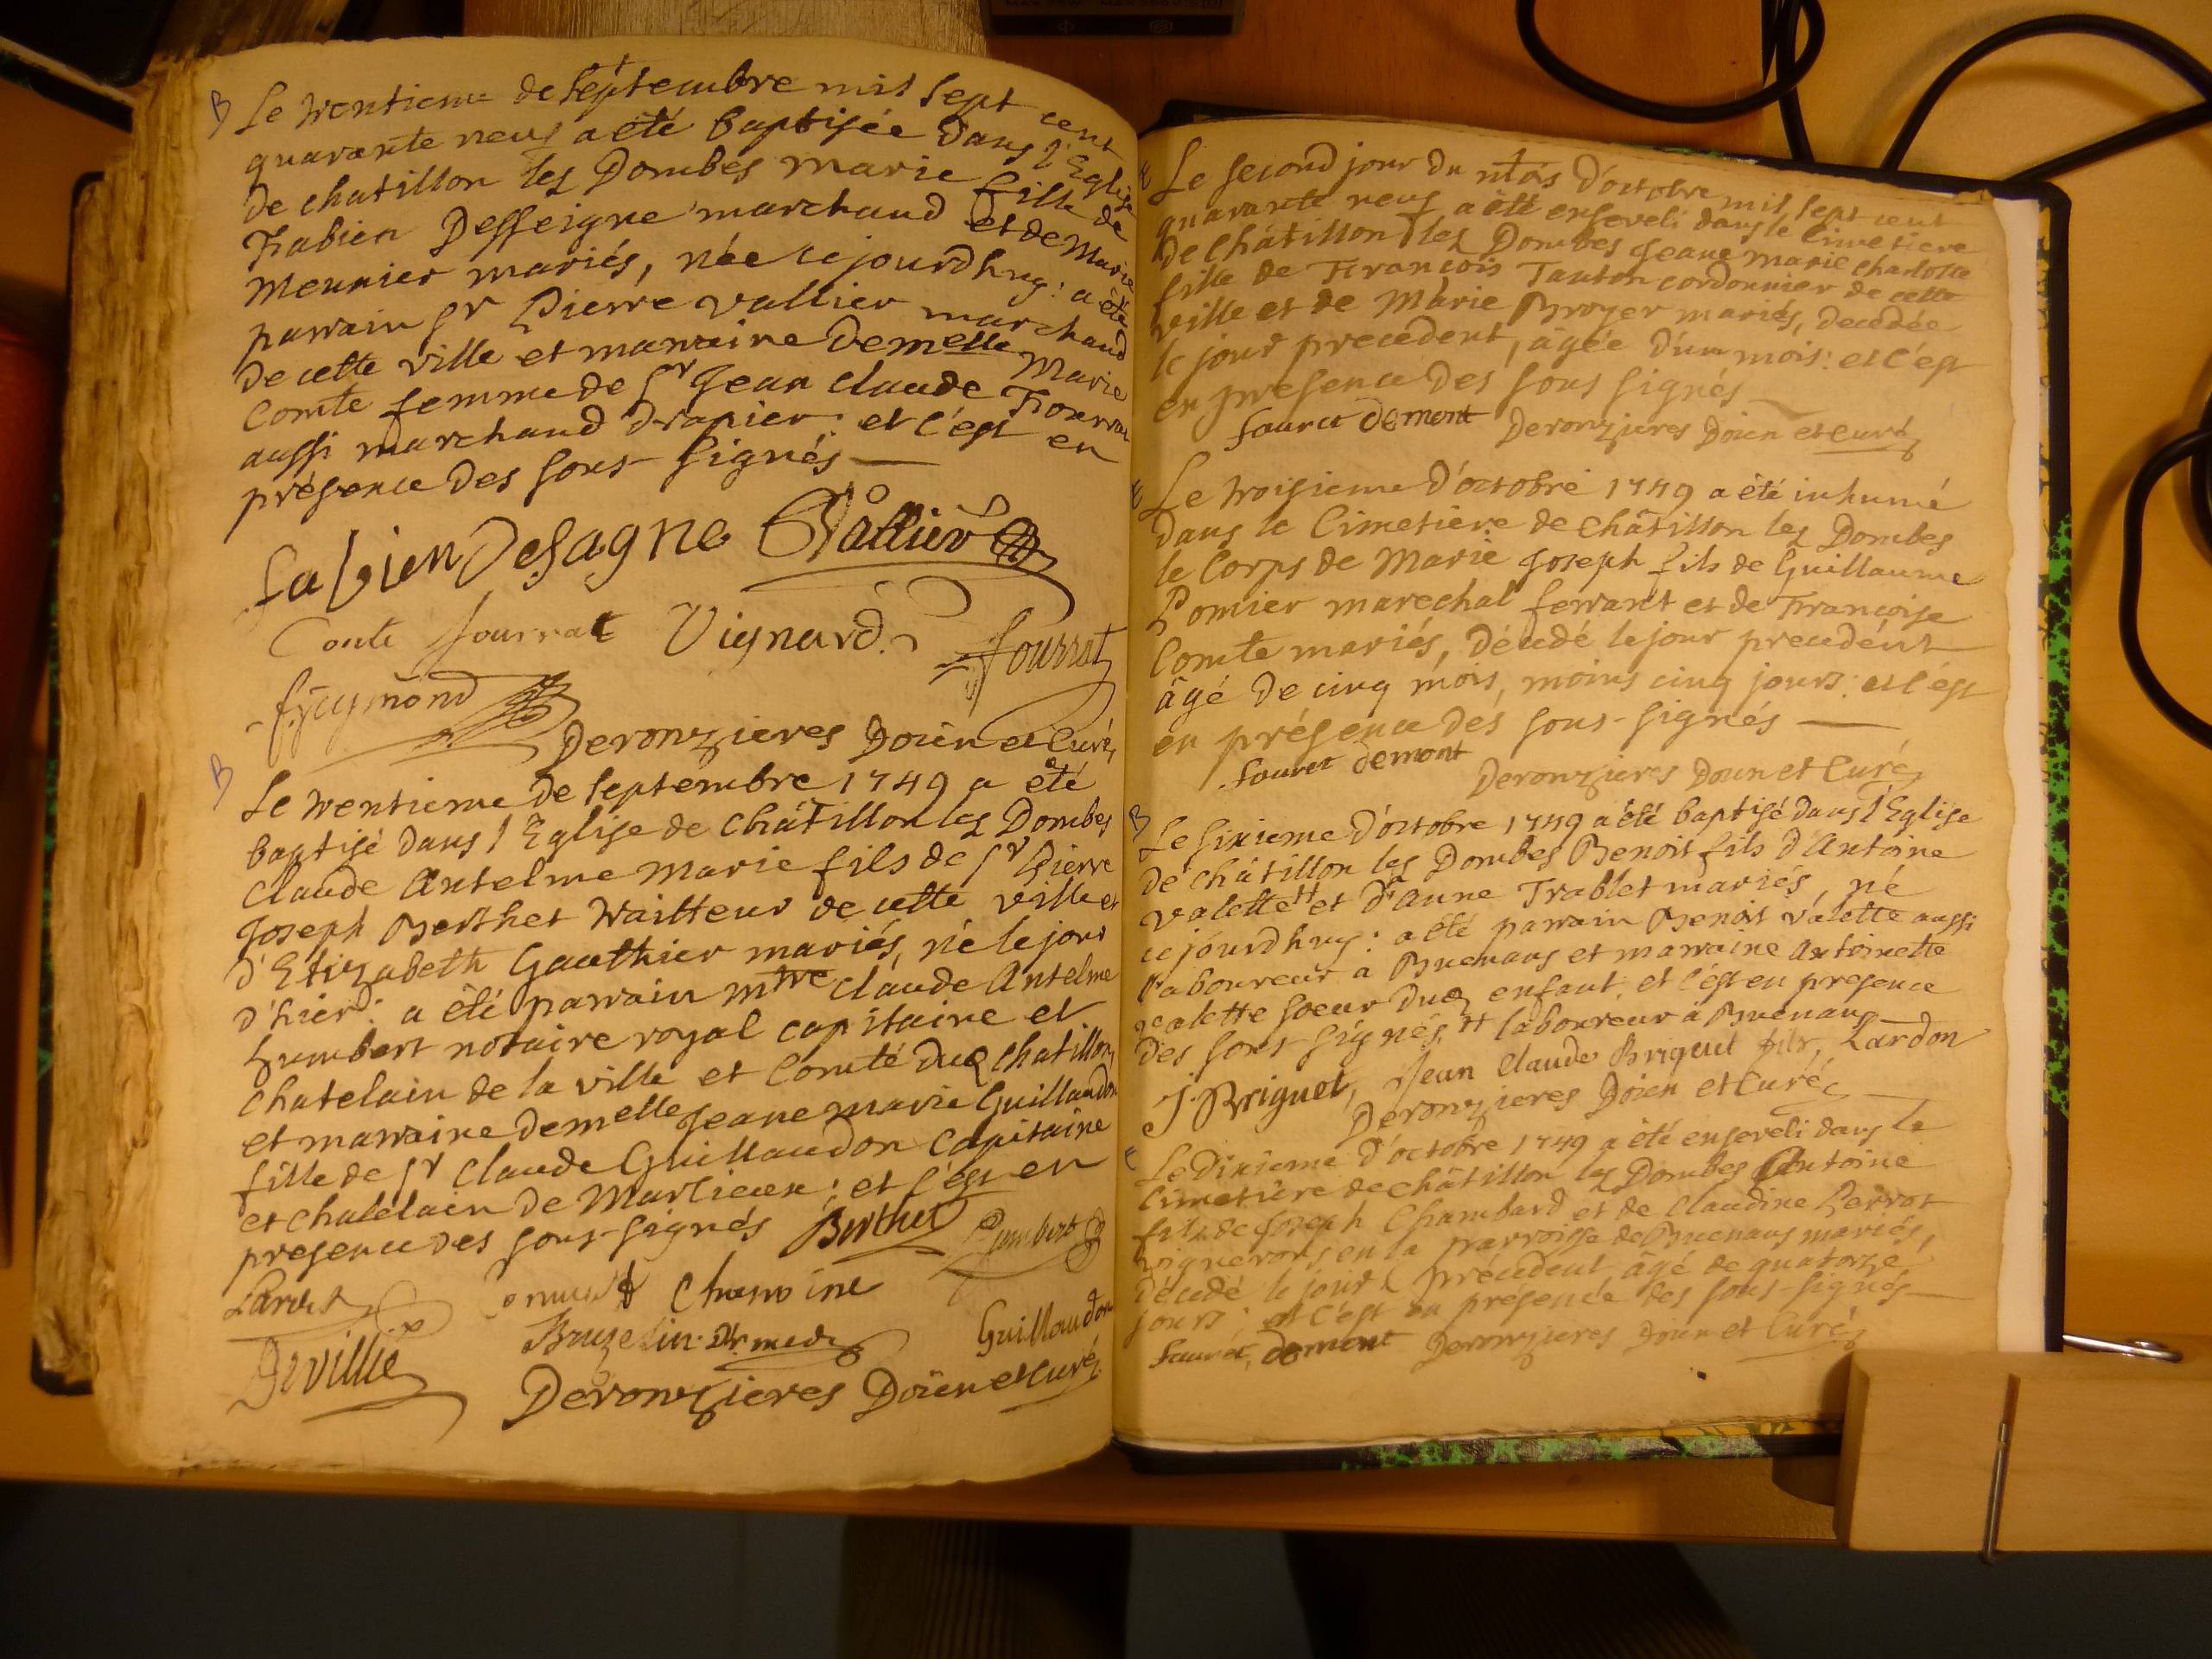 B Le trentieme de septembre mil sept cent
quarante neuf a été baptisée dans l'Eglise
de chatillon les Dombes marie fille de
Fabien Desseigne marchand et de Marie
Meunier mariés, née ce jourdhuy: a été
parrain sr Pierre vallier marchand
de cette ville et marraine demelle Marie
Comte femme de sr Jean claude Fourrat
aussi marchand drapier: et c'est en
présence des sous-signés
fabien Desagne Vallier
Conte fourrat Vignard fourrat
freymond
Deronzieres Doïen et Curé
B Le trentieme de septembre 1749 a été
baptisé dans l'Eglise de châtillon les Dombes
Claude Antelme Marie fils de sr Pierre
Joseph Berthet traitteur de cette ville et
d'Elizabeth Gauthier mariés, né le jour
d'hier: a été parrain mtre claude Antelme
humbert notaire royal capitaine et
chatelain de la ville et Comté duq chatillon
et marraine demelle Jeane marie Guillaudon
fille de sr Claude Guillaudon Capitaine
et chatelain de Marlieux: et c'est en
presence des sous-signés Berthet humbert
Chanoine
Guillaudon
Deville
Deronzieres Doïen et curé
E Le second jour du mois d'octobre mil sept cent
quarante neuf a été enseveli dans le Cimetiere
de Châtillon les Dombes Jeane marie charlotte
fille de François Tanton cordonnier de cette
ville et de Marie Broyer mariés, décédée
le jour precedent, âgée d'un mois: et c'est
en presence des sous signés
fouret demont Deronzieres Doïen et curé
E Le troisieme d'octobre 1749 a été inhumé
dans le Cimetiere de Châtillon les Dombes
le Corps de Marie Joseph fils de Guillaume
Pomier marechal ferrant et de Françoise
Comte mariés, décédé le jour precedent
âgé de cinq mois, moins cinq jours: et c'est
en présence des sous-signés
fouret demont
Deronzieres Doïen et Curé
B Le sixieme d'octobre 1749 a été baptisé dans l'Eglise
de châtillon les Dombes Benoit fils d'Antoine
valette # et d'anne Trablet mariés, né
ce jourdhuy: a été parrain Benoit valette aussi
laboureur a Buenans et marraine Antoinette
valette soeur duq enfant, et c'est en presence
des sous-signés, # laboureur a Buenans
J. Briguet, Jean Claude Briguet fils, Lardon
Deronzieres Doïen et Curé
E Le Dixieme d'octobre 1749 a été enseveli dans le
Cimetiere de châtillon les Dombes Antoine
fils de Joseph Chambard et de Claudine Perrot
vignerons en la parroisse de Buenans mariés,
décédé le jour précedent âgé de quatorze
jours: et c'est en présence des sous-signés
fouret, demont Deronzieres Doïen et Curé